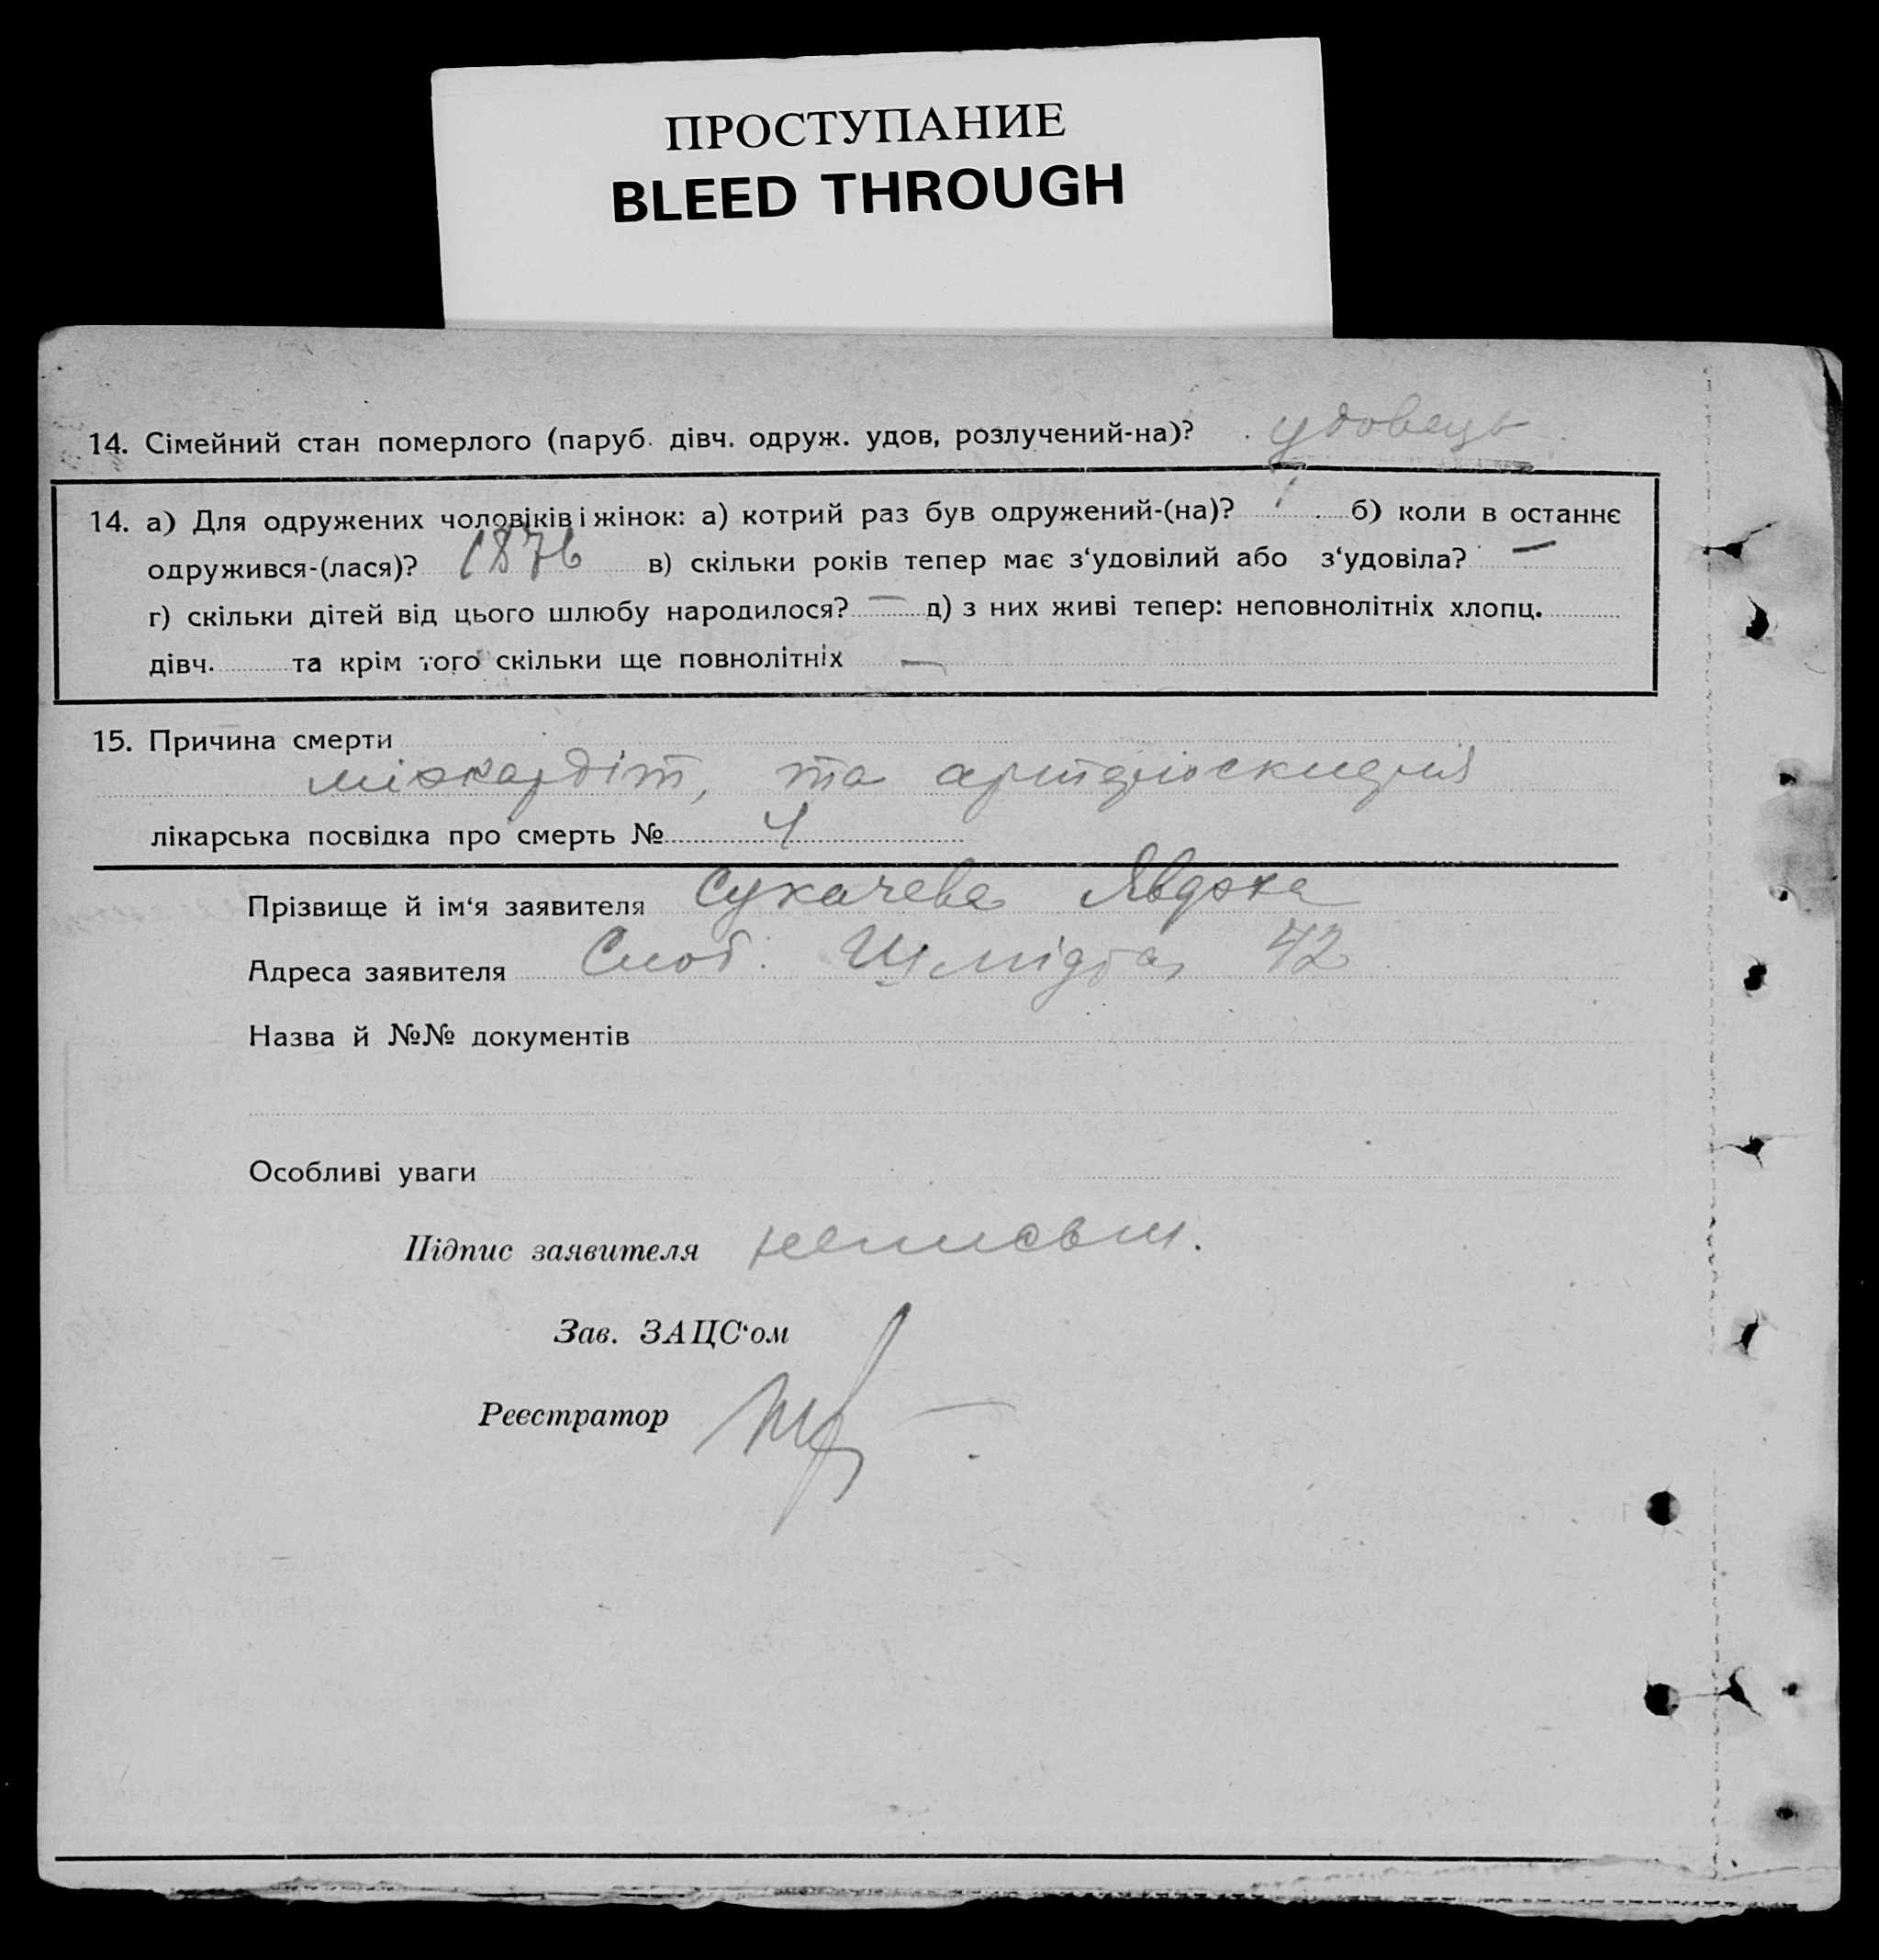 ПРОСТУПАНИЕ
BLEED THROUGH
14. Сімейний стан померлого (паруб. дівч. одруж. удов, розлучений-на)? удовець
14. а) Для одружених чоловіків і жінок: а) котрий раз був одружений-(на)? 1 б) коли в останнє
одружився-(лася)? 1876 в) скільки років тепер має з‘удовілий або з‘удовіла? —
г) скільки дітей від цього шлюбу народилося? — д) з них живі тепер: неповнолітніх хлопц.
дівч. та крім того скільки ще повнолітніх —
15. Причина смерти
міокардіт, та
лікарська посвідка про смерть № 4
Прізвище й ім‘я заявителя Сукачева Явдоха
Адреса заявителя Слоб. Шмідта 42
Назва й №№ документів
Особливі уваги
Підпис заявителя неписьм.
Зав. ЗАЦС‘ом
Реєстратор